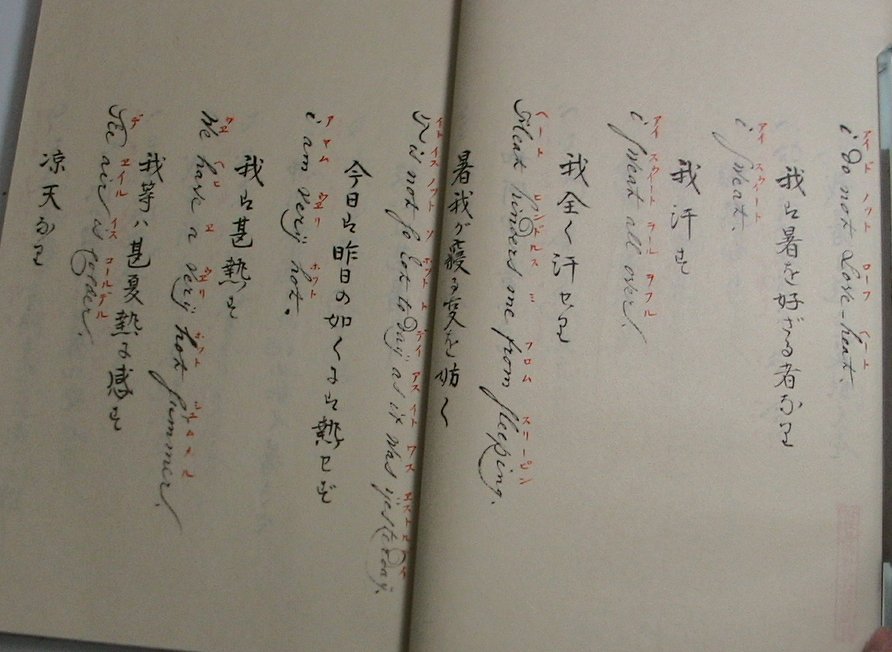 アイ ド ノット ローフ ヘート
i do not Love-heat.
我ハ暑を好ざる者なり
アイ スウェート
i sweat.
我汗す
アイ スウェート ヲール ヲフル
i sweat all over.
我全く汗せり
ヘート ヒンドルス ミ フロム スリーピン
Heat hinders me from sleeping.
暑我が寝る事を妨く
イト イス ノット ソ ホット ト デイ アス イト ワス
it is not so hot to day as it was yesterday.
今日ハ昨日の如くにハ熱せず
ア ヤム ウエリ ホット
i am very hot.
我ハ甚熱す
ウエ ヘヒ エ ウエリ ホット
We have a very hot summer.
我等ハ甚夏熱を感す
デ エイル イス コールデル
The air is colder.
凉天なり